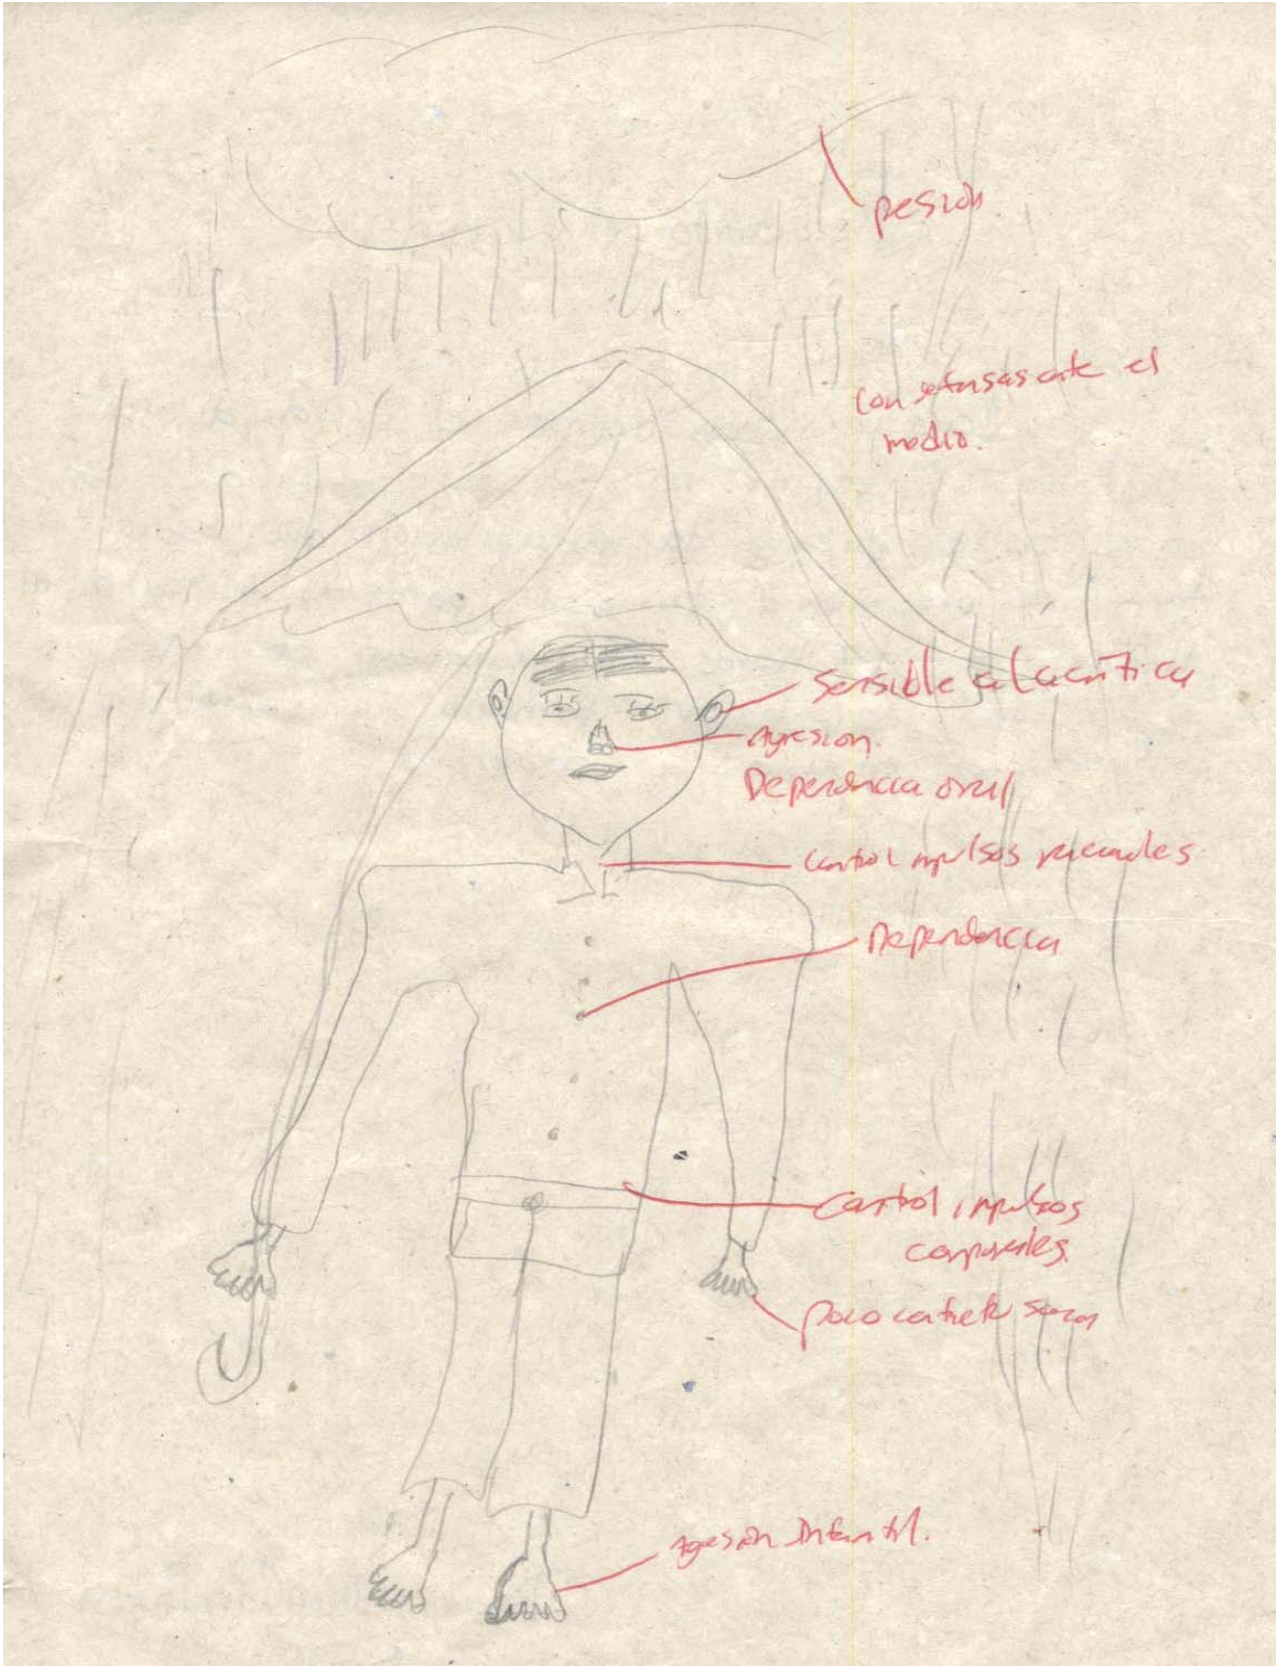 pesion
Con defensas ante el
medio.
Sensible a la critica
Agresion.
Dependencia oral
Control impulsos
Dependencia
Control impulsos
corporales.
poco contacto
Agesion Infantil.